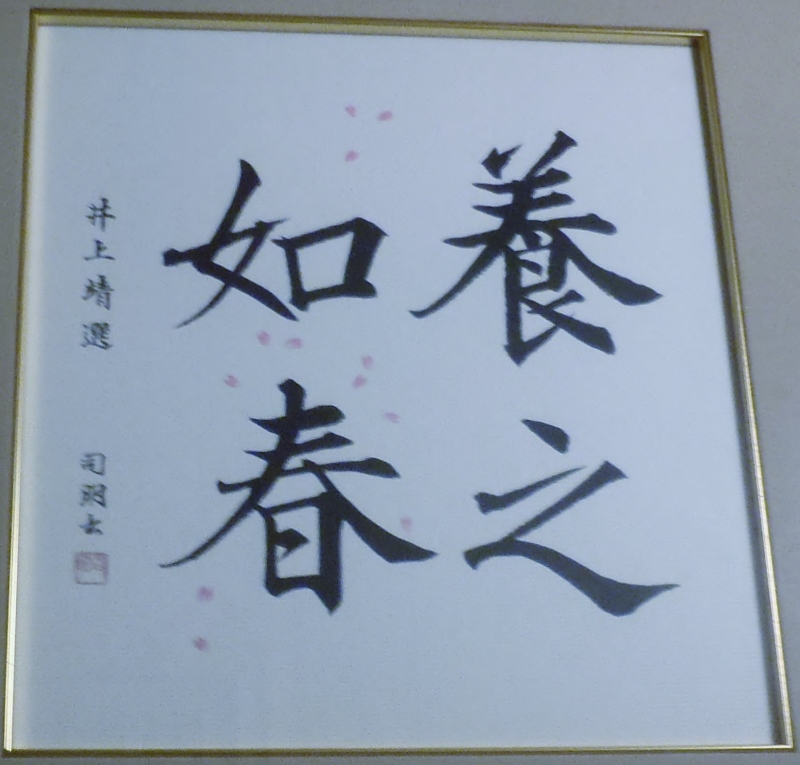 養之
如春
井上靖選
司朗書